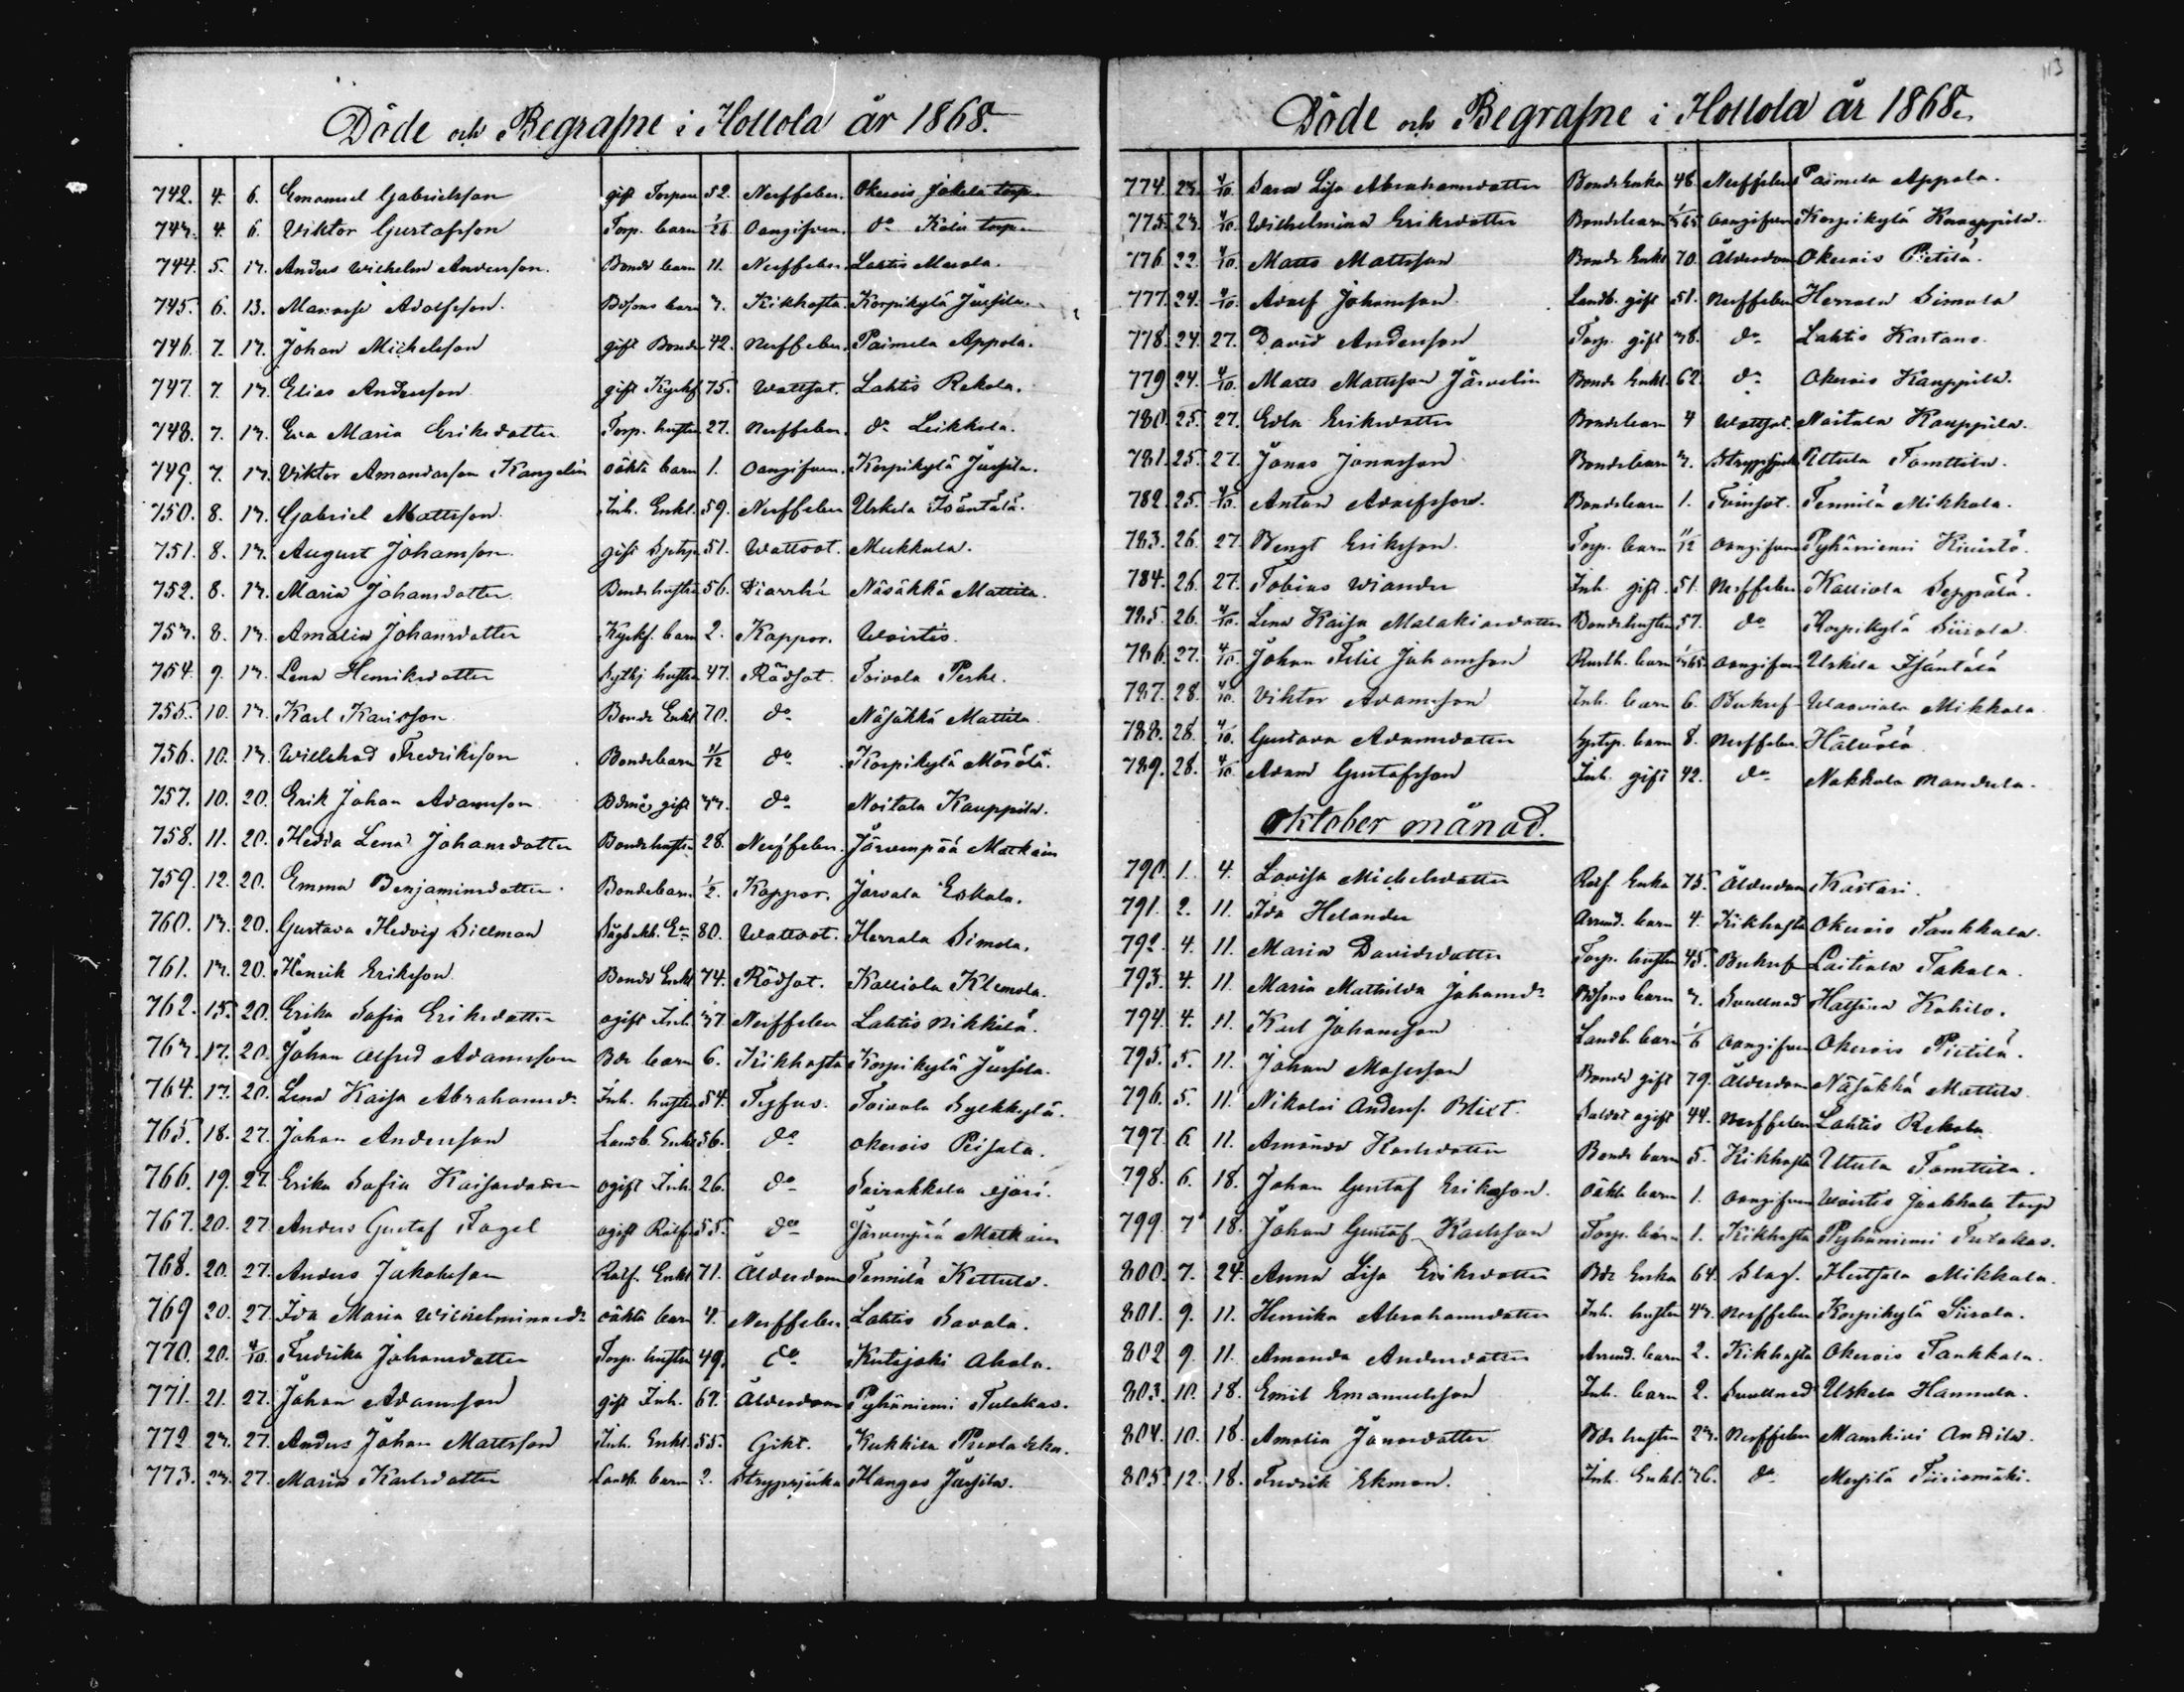 Döde och Begrafne i Hollola år 1868.
742. 4. 6. Emanuel Gabrielsson gift Torpare 52. Nerffeber. Okerois Jokela torp
743. 4. 6. Viktor Gustafsson Torp. barn 1/26 Oangifven. do Koiv torp
744. 5. 13. Anders Wilhelm Andersson. Bonde barn 11. Nerffeber Lahtis Marola.
745. 6. 13. Manasse Adolfsson. Bdsons barn 3. Kikhosta Korpikylä Jussila.
746. 7. 13. Johan Michelsson gift Bonde 42. Nerffeber. Paimela Appola.
747. 7. 13. Elias Andersson gift Kyrkf 75. Wattsot. Lahtis Rekola.
748. 7. 13. Eva Maria Eriksdotter Torp. hustru 27. Nerffeber. do Leikkola.
749. 7. 13. Viktor Amandasson Kangelin oäkta barn 1. Oangifven. Korpikylä Jussila.
750. 8. 13. Gabriel Mattsson. Inh. Enkl. 59. Nerffeber Uskela Isäntälä.
751. 8. 13. August Johansson gift 51. Wattsot. Mukkula.
752. 8. 13. Maria Johansdotter Bonde hustru 56. Diarrhé Näsäkkä Mattila.
753. 8. 13. Amalia Johansdotter Kyrkf. barn 2. Koppor. Woistis.
754. 9. 13. Lena Henriksdotter hustru 47. Rödsot. Toivola Perhe.
755. 10. 13. Karl Karlsson Bonde Enkl 70. do Näsäkkä Mattila
756. 10. 13. Willehad Fredriksson Bondebarn 11/12 do Korpikylä Mäsölä.
757. 10. 20. Erik Johan Adamsson gift 33. do Noitala Kauppila.
758. 11. 20. Hedda Lena Johansdotter Bondehustru 28. Nerffeber. Järvenpää Matkain
759. 12. 20. Emma Benjaminsdotter Bondebarn 1/2. Koppor. Jarvala Eskola.
760. 13. 20. Gustava Hedvig Sillman 80. Wattsot. Herrala Simola.
761. 13. 20. Henrik Eriksson Bonde Enkl 74. Rödsot. Kalliola Klemola.
762. 15. 20. Erika Sofia Eriksdotter ogift Inh. 37. Nerffeber Lahtis Nikkilä.
763. 17. 20. Johan Alfred Adamsson Bde barn 6. Kikhosta Korpikylä Jussila.
764. 17. 20. Lena Kaisa Abrahamsdr Inh. hustru 54. Tyfus. Toivola Syrkkylä.
765. 18. 27. Johan Andersson Landb. Enkl 56. do Okerois Peisala.
766. 19. 27. Erika Sofia Kaisasdotter ogift Inh. 26. do Sairakkala
767. 20. 27. Anders Gustaf Fagel ogift Rotf. 55. do Järvenpää Matkain
768. 20. 27. Anders Jakobsson Rotf. Enkl 71. Ålderdom Tennilä Kettula.
769 20. 27. Ida Maria Wilhelminasdr oäkta barn 4. Nerffeber Lahtis Savola.
770. 20. 4/10. Fredrika Johansdotter Torp. hustru 49. do Kutajoki Ahola.
771. 21. 27. Johan Adamsson gift Inh. 67. Ålderdom Pyhäniemi Tulokas.
772 23. 27. Anders Johan Mattsson Inh. Enkl. 55. Gikt. Kukkila
773. 23. 27. Maria Karlsdotter Landb. barn 2. Strypsjuka Hangas Jussila.
113
Döde och Begrafne i Hollola år 1868.
774. 23. 4/10. Sara Lisa Abrahamsdotter Bonde Enka 48. Nerffeber Paimela Appola.
775. 23. 4/10. Wilhelmina Eriksdotter Bondebarn oangifven Korpikylä Knaappila.
776. 22. 4/10. Matts Mattsson Bonde Enkl 70. Ålderdom Okerois Pietilä.
777. 24. 4/10. Adolf Johansson Landb. gift 51. Nerffeber Herrala Simola
778. 24. 27. David Andersson Torp. gift 38. do Lahtis Kartano.
779 24. 4/10. Matts Mattsson Järvelin Bonde Enkl. 62. do Okerois Kauppila.
780. 25. 27. Edla Eriksdotter Bondebarn 4 Wattsot. Noitala Kauppila.
781. 25. 27. Jonas Jonasson Bondebarn 3. Strypsjuka Uttula Tomttila.
782. 25. 4/10. Anton Adolfsson. Bondebarn 1. Tvinsot. Tennilä Mikkola.
783. 26. 27. Bengt Eriksson. Torp. barn 11/12 oangifven Pyhäniemi Kivistö.
784. 26. 27. Tobias Wiander Inh. gift. 51. Nerffeber Kalliola Seppälä.
785. 26. 4/10. Lena Kaisa Malakiasdotter Bondehustru 57. do Korpikylä Siirola
786. 27. 4/10. Johan Felix Johansson Rusth. barn oangifven Uskila Isäntälä
787. 28. 4/10. Viktor Adamsson Inh. barn 6. Bukref Waaviala Mikkola
788. 28. 4/10. Gustava Adamsdotter barn 8. Nerffeber Hälvälä
789. 28. 4/10. Adam Gustafsson Inh. gift 42. do Nokkola Mandula.
Oktober månad.
790. 1. 4. Lovisa Michelsdotter Rotf. Enka 75. Ålderdom Kastari.
791. 2. 11. Ida Helander Arrend. barn 4. Kikhosta Okerois Tankkala.
792. 4. 11. Maria Davidsdotter Torp. hustru 45. Bukref Laitiala Takala.
793. 4. 11. Maria Mathilda Johansdr Bdsons barn 3. Svullnad Hatsina Kahilo.
794. 4. 11. Karl Johansson Landb. barn 1/6 oangifven Okerois Pietilä.
795. 5. 11. Johan Mosesson Bonde gift 79. Ålderdom Näsäkkä Mattila
796. 5. 11. Nikolai Anderss. Blixt. Soldat ogift 44. Nerffeber Lahtis Rekola
797. 6 11. Amanda Karlsdotter Bonde barn 5. Kikhosta Uttula Tomttila.
798. 6. 18. Johan Gustaf Eriksson. oäkta barn 1. oangifven Woistis Jaakkola torp
799. 7 18. Johan Gustaf Karlsson Torp. barn 1. Kikhosta Pyhäniemi Tulokas.
800. 7. 24. Anna Lisa Eriksdotter Bde Enka 64. Slag. Herttala Mikkola.
801. 9. 11. Henrika Abrahamsdotter Inh. hustru 43. Nerffeber Korpikylä Siirola.
802 9. 11. Amanda Andersdotter Arrend. barn 2. Kikhosta Okerois Tankkala.
803. 10. 18. Emil Emanuelsson Inh. barn 2. Svullnad Uskela Hannula.
804. 10. 18. Amalia Jonasdotter Bde hustru 23. Nerffeber Manskivi Anttila.
805. 12. 18. Fredrik Ekman. Inh. Enkl. 36. do Messilä Tiirismäki.